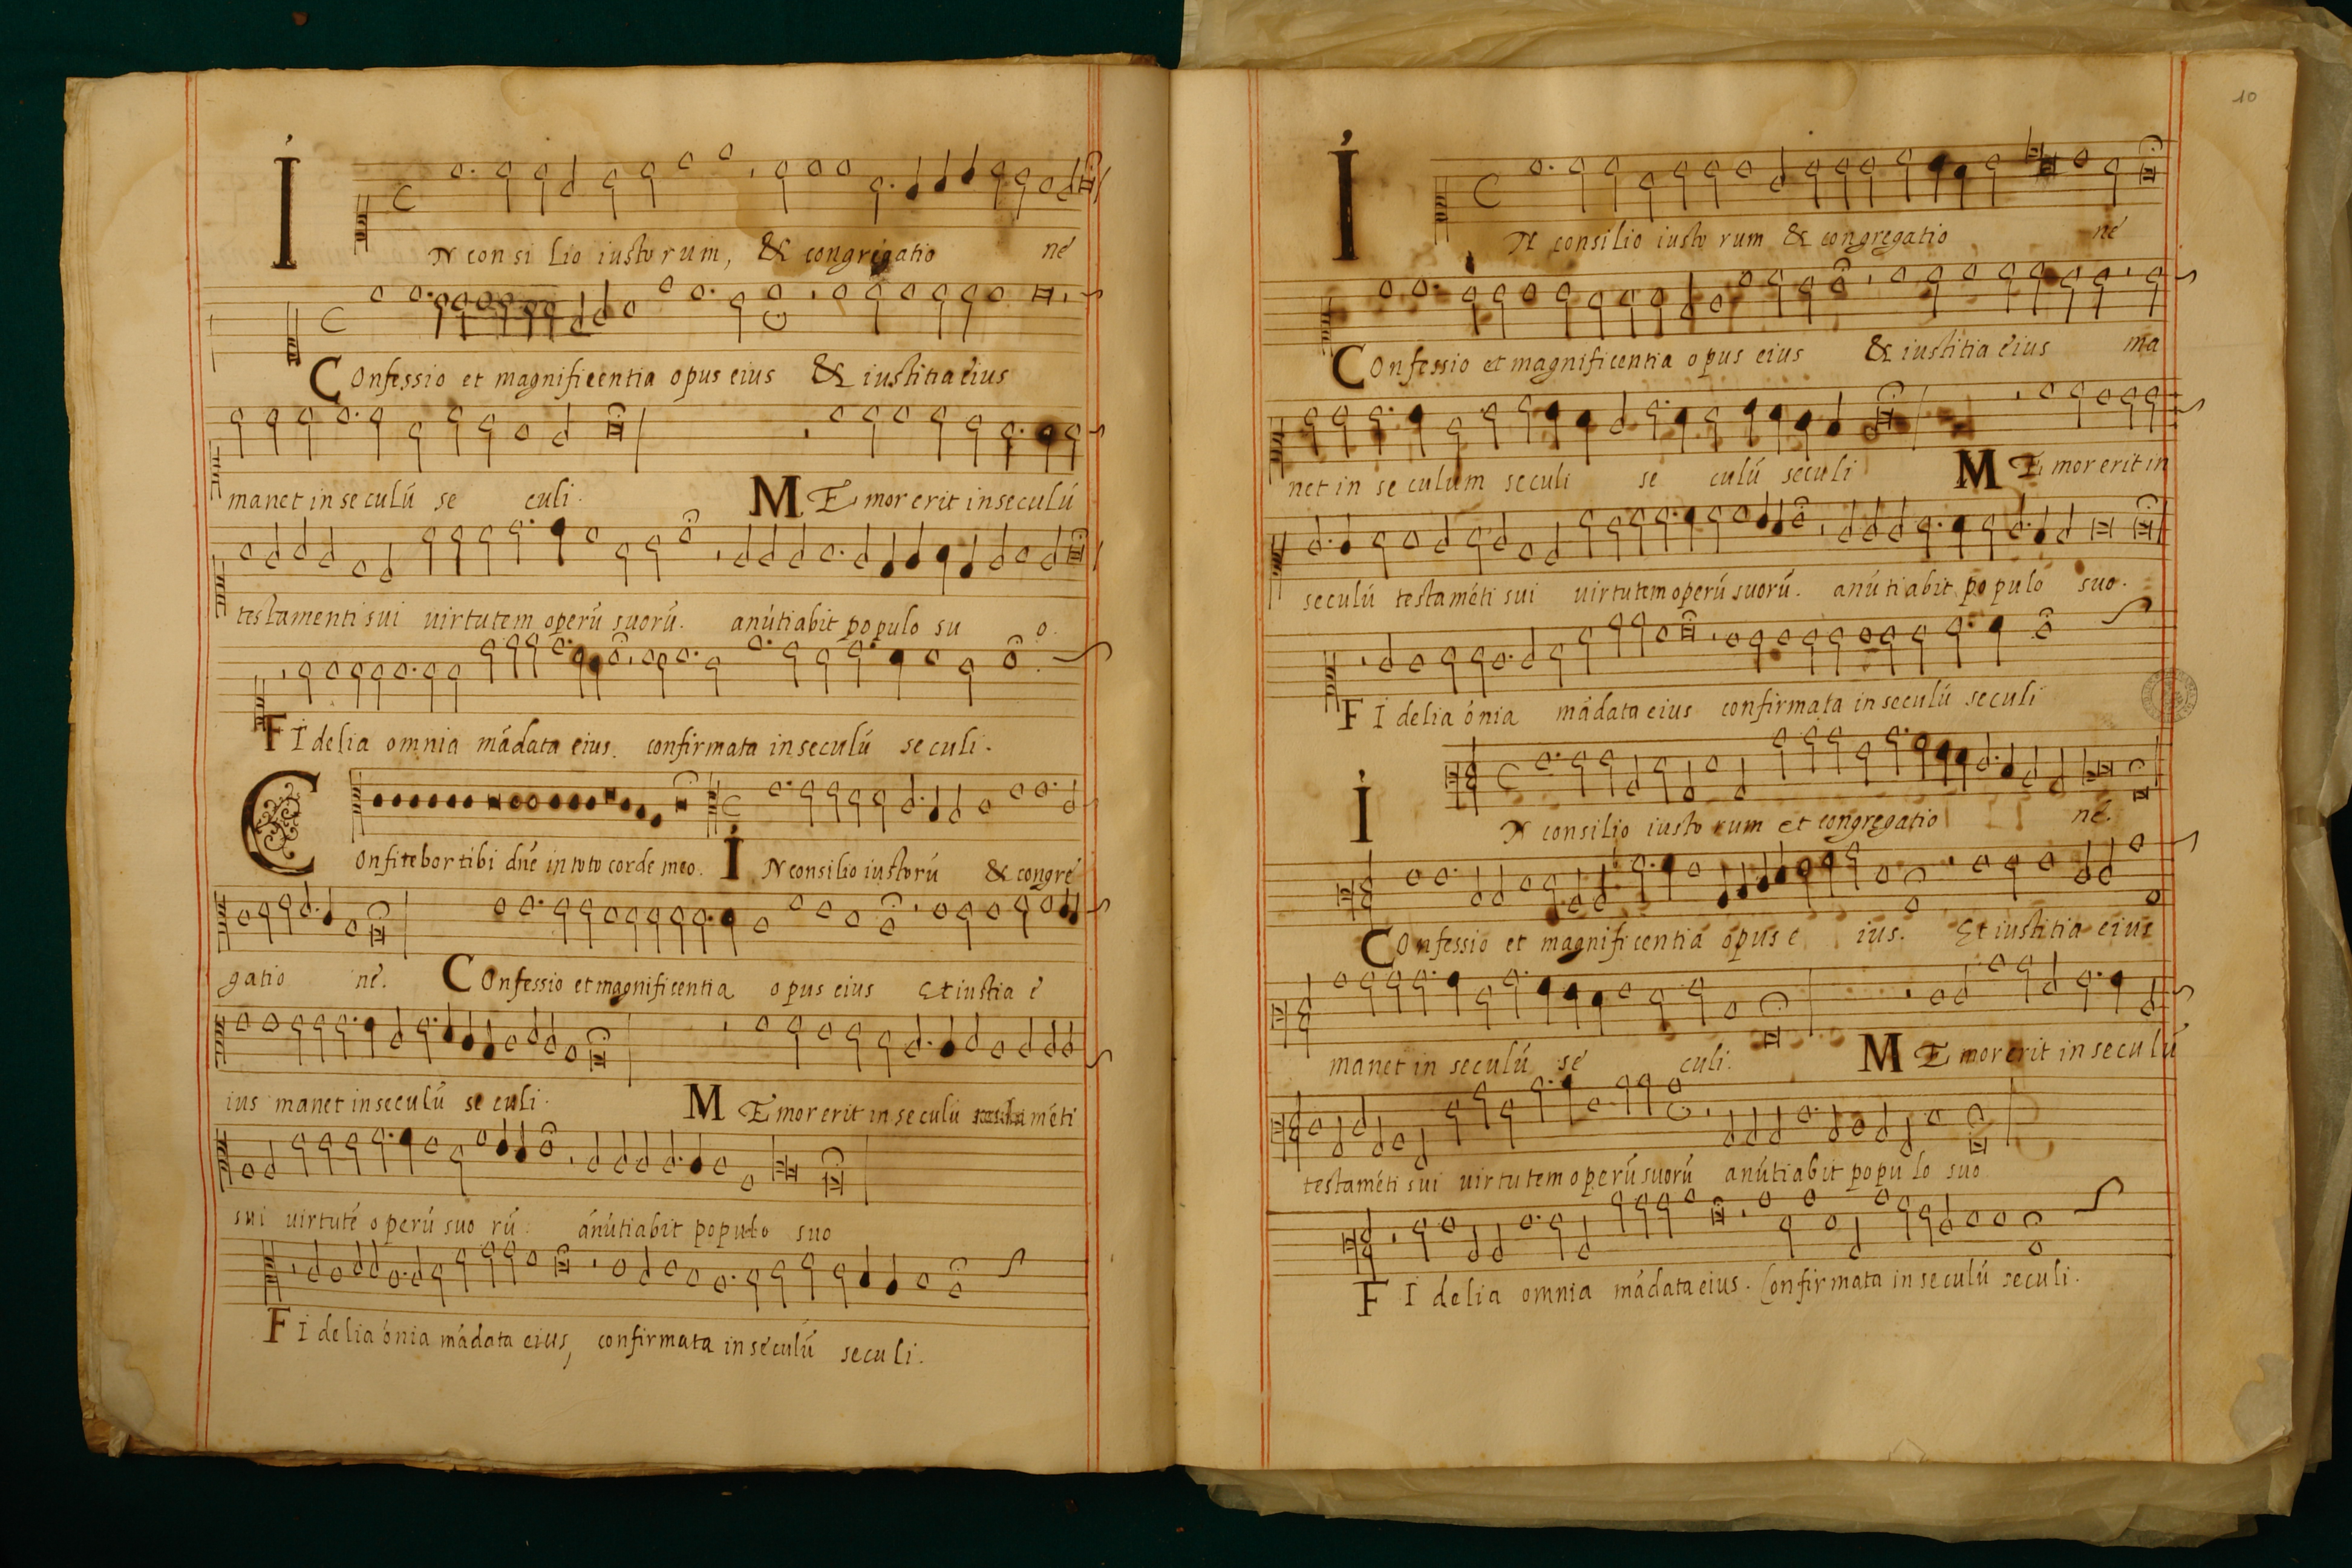 IN consilio iustorum, & congregatio né
COnfessio et magnificentia opus eius & iustitia eius
manet in seculú se culi. MEmor erit in seculú
testamenti sui uirtutem operú suorú. anútiabit populo su o.
FIdelia omnia mádata eius. confirmata in seculú seculi.
COnfitebor tibi dñe in toto corde meo. IN consilio iustorú & congré
gatio né. COnfessio et magnificentia opus eius Et iustia é
ius manet in seculú seculi. MEmor erit in seculu méti
sui uirtuté operú suo rú: anútiabit populo suo
FIdelia ónia mádata eius, confirmata in seculú seculi.
10
IN consilio iustorum & congregatio né
COnfessio et magnificentia opus eius & iustitia eius ma
net in seculum seculi se culú seculi MEmor erit in
seculú testaméti sui uirtutem operú suorú. anútiabit populo suo.
FIdelia ónia mádata eius confirmata in seculú seculi
IN consilio iustorum et congregatio né.
COnfessio et magnificentia opus e ius. Et iustitia eius
manet in seculú se culi. MEmor erit in seculú
testaméti sui uirtutem operú suorú anútiabit populo suo
FIdelia omnia mádata eius. Confirmata in seculú seculi.